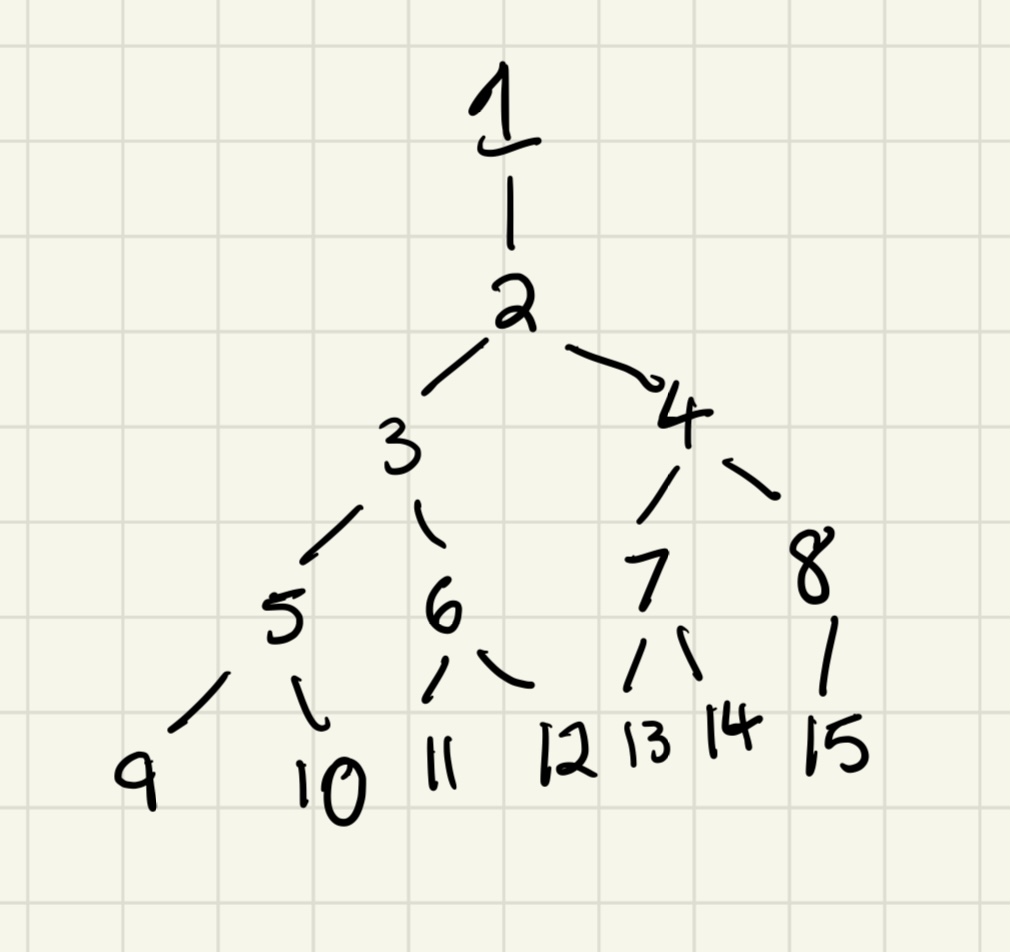 1
2
3 4
5 6 7 8
9 10 11 12 13 14 15